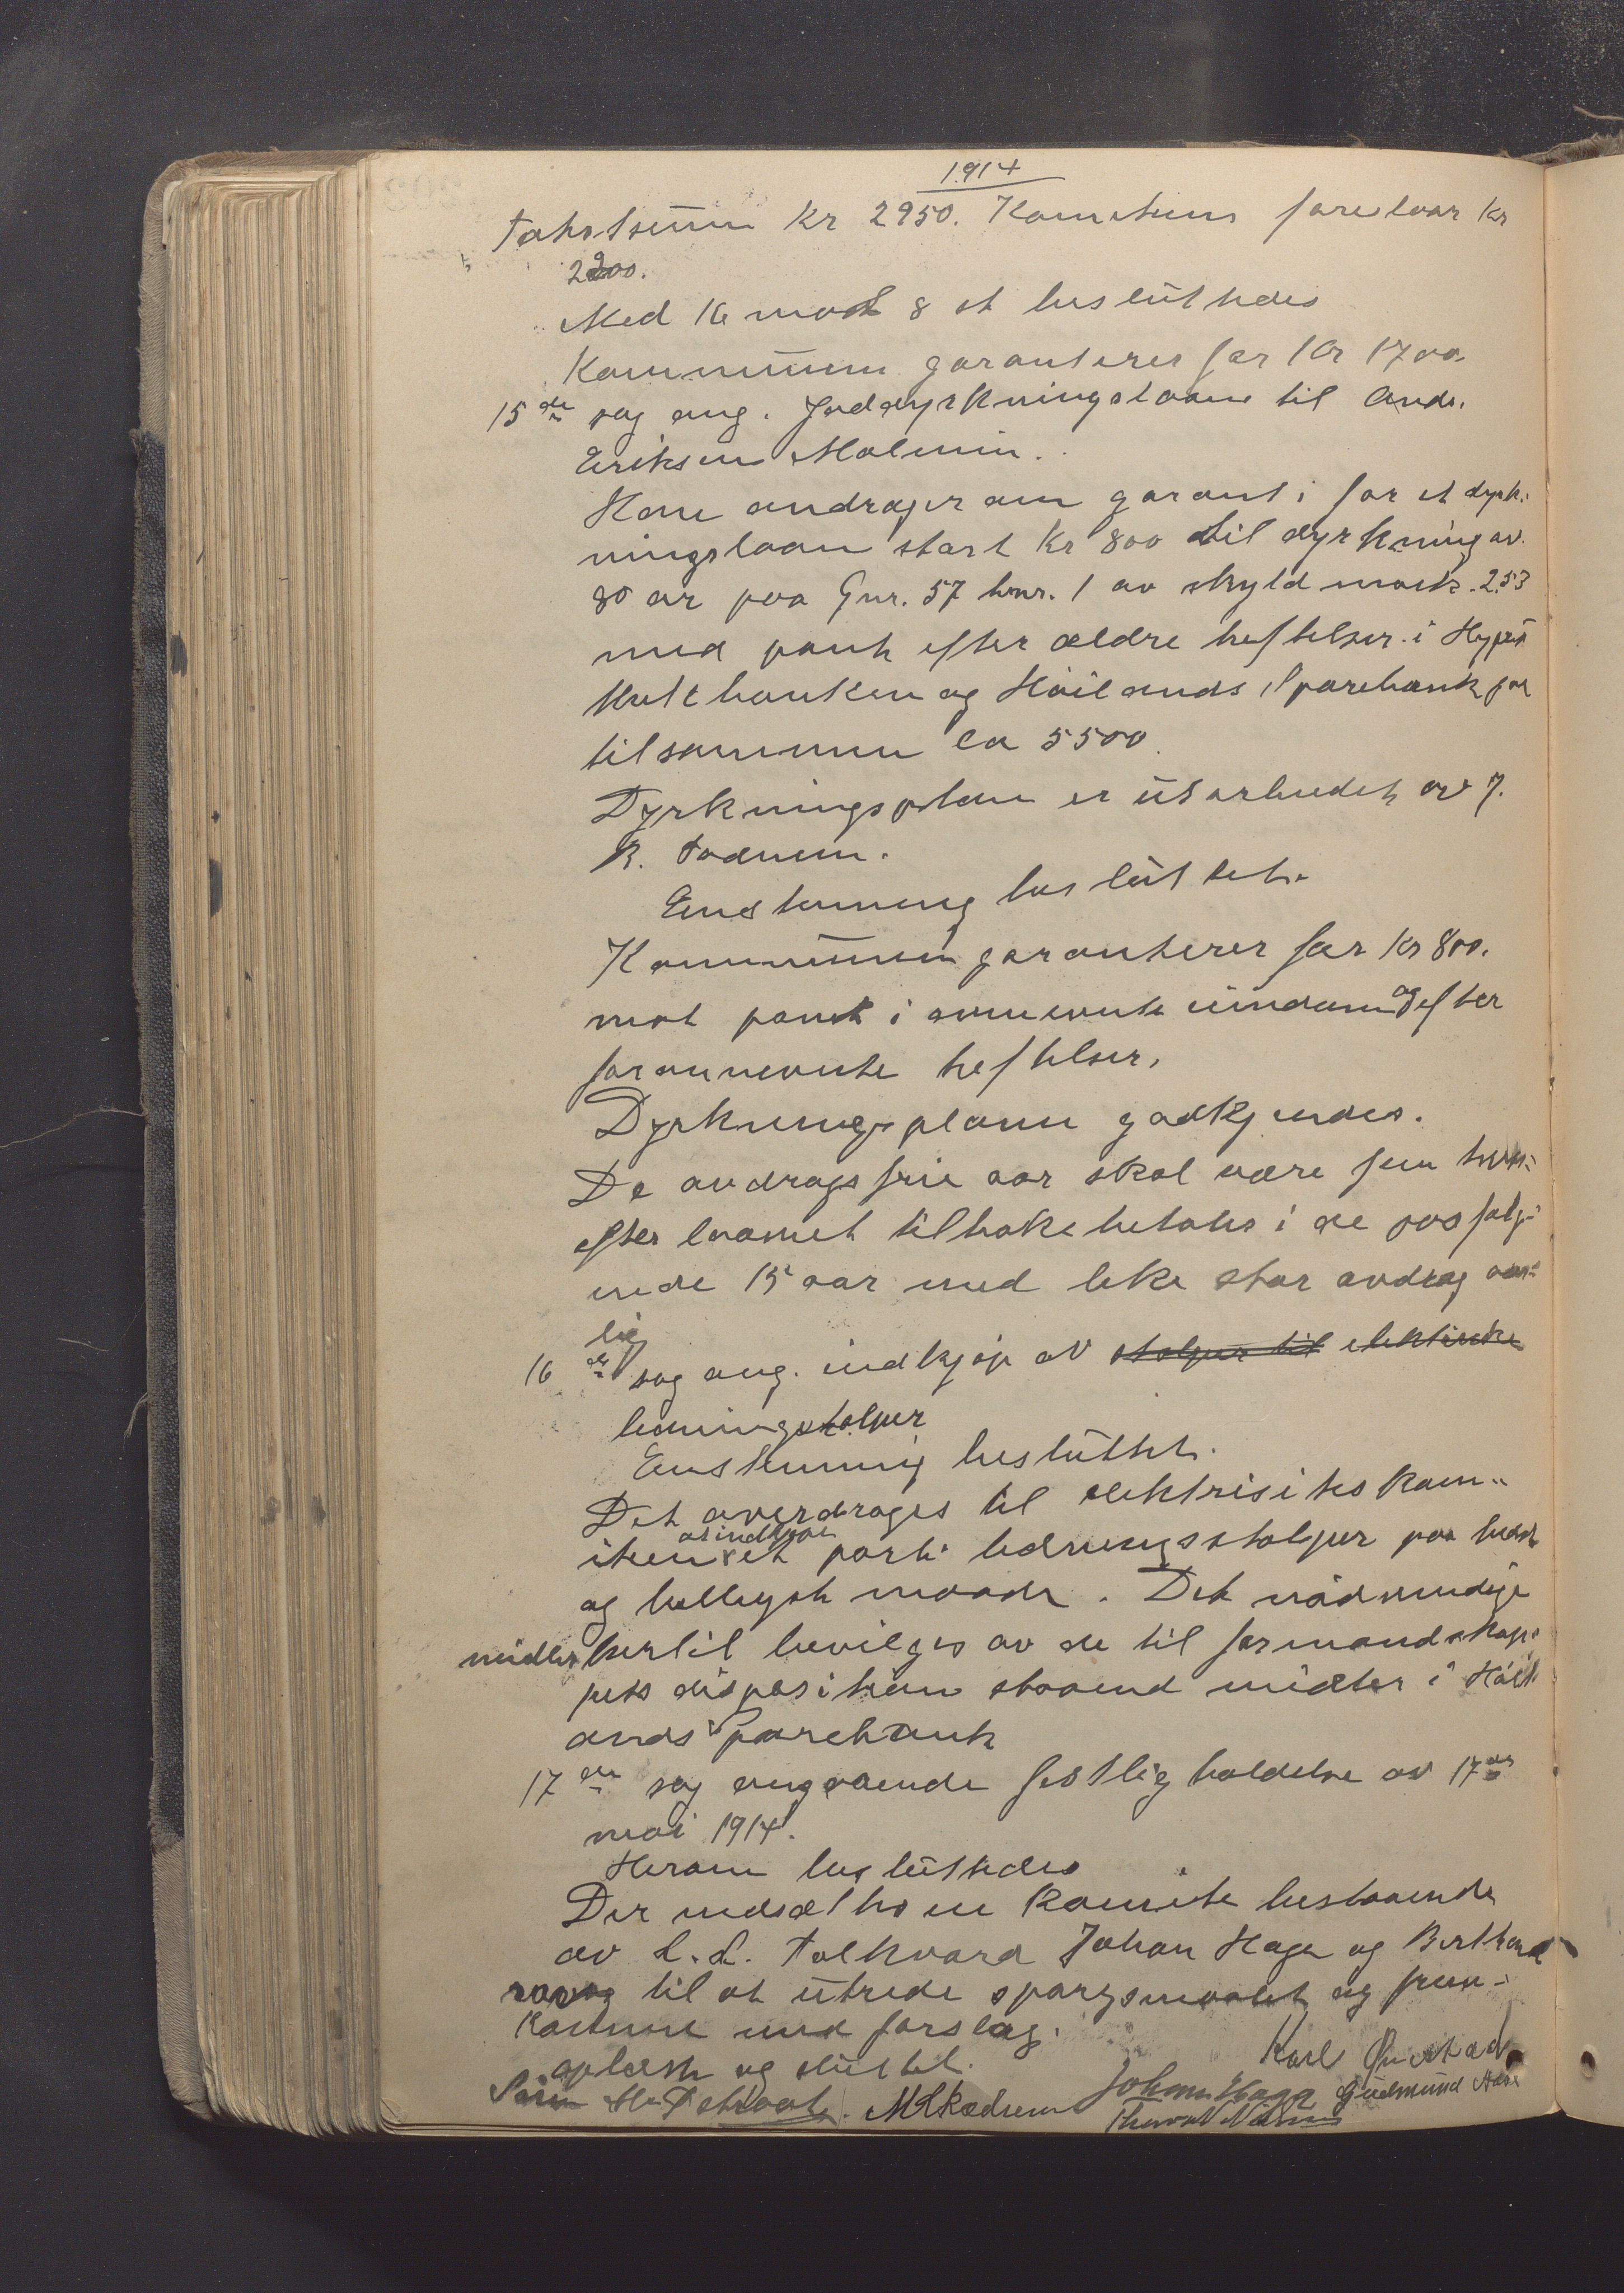 1914
Takstsum Kr 2950. Komiteens foreslaar Kr
2200.
Med 16 mot 8 st besluttedes
Kommunen garanterer for Kr 1700.
15de sag ang. Jorddyrkningslaan til Ands.
Eriksen Malmin.
Han andrager om garanti for et dyrk-
ningslaan stort Kr 800 til dyrkning av
80 ar paa Gnr. 57 bnr. 1 av skyld mark 2.53
med pant efter ældre heftelser i Hypo-
thekbanken og Höilands Sparebank for
tilsammen ca 5500.
Dyrkningsplan er utarbeidet av J.
R. Todnem.
Enstemmig besluttet.
Kommunen garanterer for Kr 800.
mot pant i ovennevnte eiendom og efter
forannevnte heftelser.
Dyrkningsplanen godkjendes.
De avdragsfrie aar skal være fem hvor-
efter laanet tilbakebetales i de paafølg-
ende 15 aar med like stor avdrag aar-
lig
16de sag ang. indkjøp av stolper til elektriske
ledningsstolper
Enstemmig besluttet.
Det overdrages til elektrisitetskom-
iteen at indkjøpe et parti ledningsstolper paa bedst
og belleigst maade. Det nødvendige
midler hertil bevilges av de til formandskap-
pets disposisjon staaend midler i Höil-
ands Sparebank
17de sag angaaende festlig holdelse av 17de
mai 1914.
Herom besluttedes
Der nedsættes en Komite bestaaende
av L. L. Folkvord Johan Haga og Berthard
til at utrede spørgsmaalet og frem-
komme med forslag.
oplæst og sluttet.
Karl
Johan Haga Gudmund